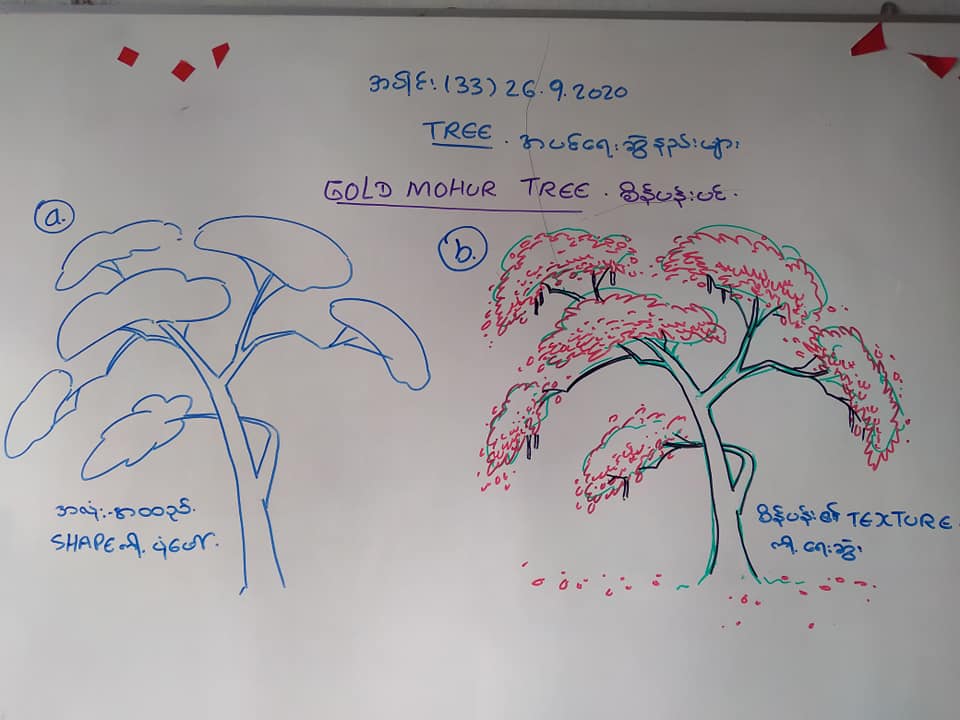 အပိုင်း (33) 26.9.2020
TREE . အပင်ရေးဆွဲနည်းများ
GOLD MOHUR TREE . စိန်ပန်းပင်.
a.
b.
SHAPE ကို ပုံဖော်.
စိန်ပန်း၏ TEXTURE.
ကို ရေးဆွဲ